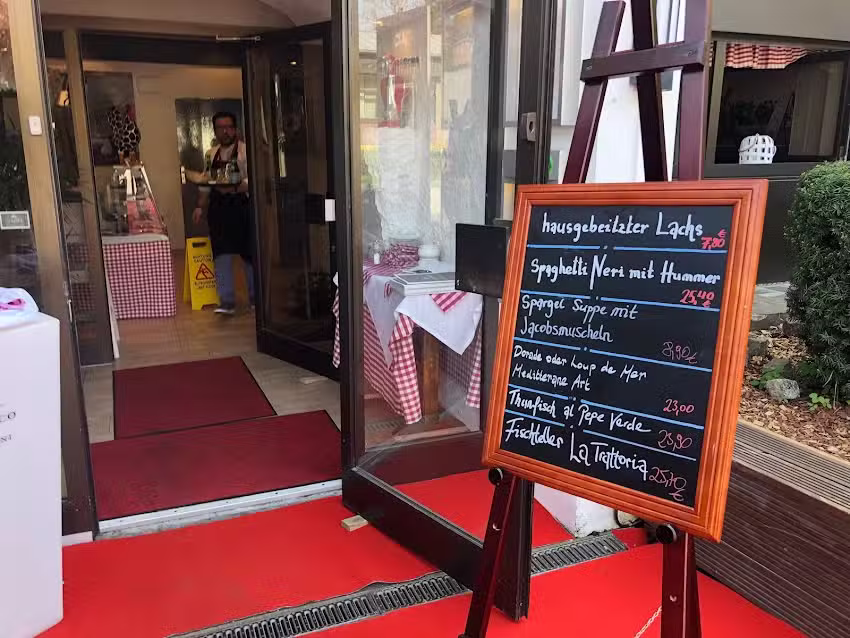 hausgebeitzter Lachs
7,80 €
Spaghetti Neri mit Hummer
25,40 €
Spargel Suppe mit
Jacobsmuscheln
8,90 €
Dorade oder Loup de Mer
Mediterrane Art
23,00
Thunfisch al Pepe Verde
23,90
Fischteller La Trattoria
25,70 €